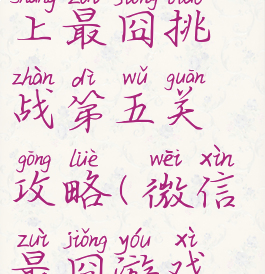 shàng zuì jiǒng tiǎo
上最囧挑
zhàn dì wǔ guān
战第五关
gōng lüè wēi xìn
攻略(微信
zuì jiǒng yóu xì
最囧游戏